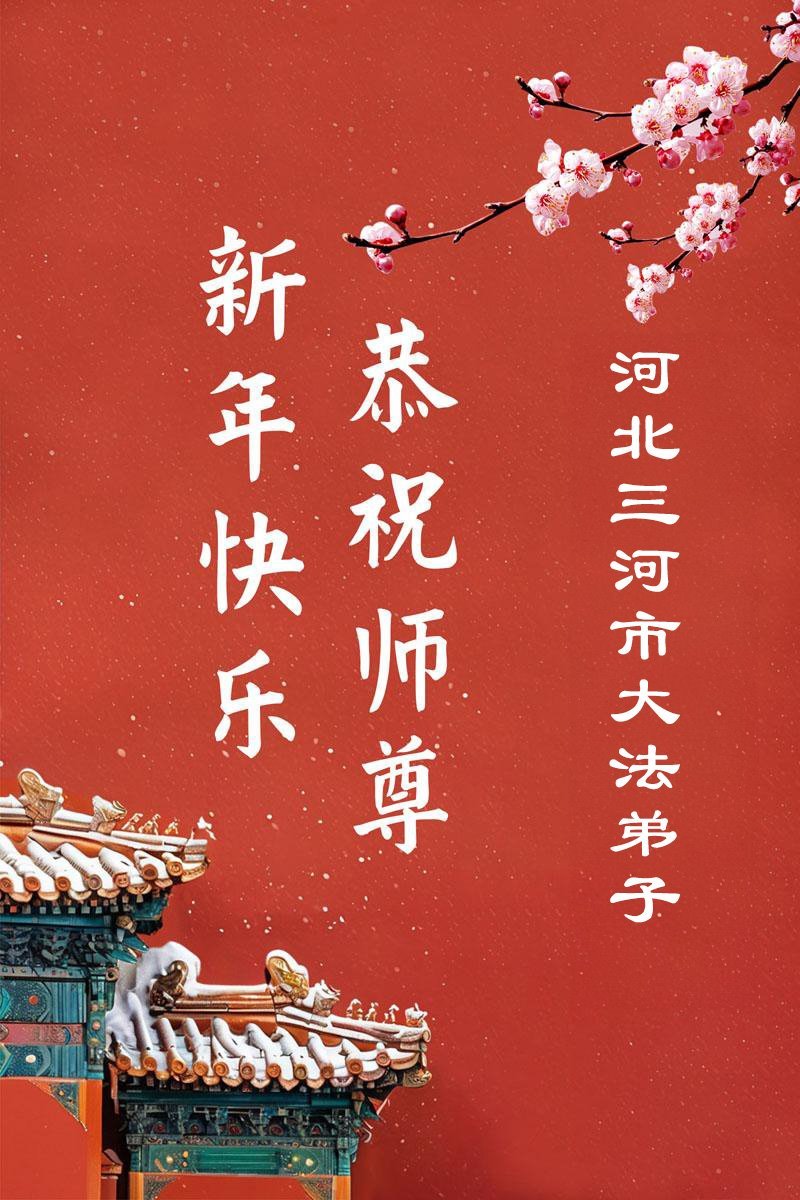 河北三河市大法弟子
恭祝师尊
新年快乐